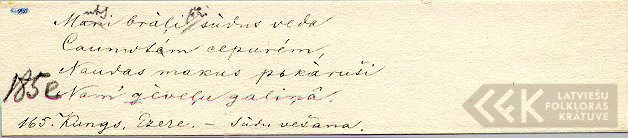 Mani brāļi sūdus veda
Caunušām cepurēm,
Naudas makus pakāruši
Nam' gēveļu galiņā.
185e
165. Kungs, Ezere. – Sūdu vešana.
LATVIEŠU
FOLKLORAS
KRĀTUVE